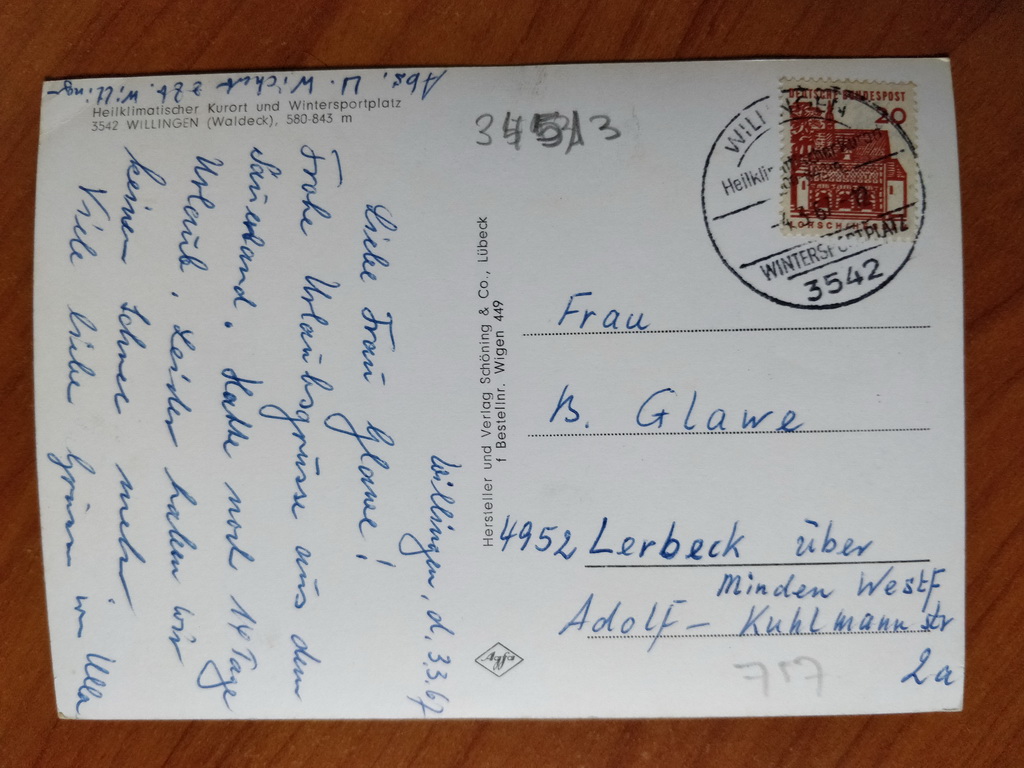 Abs. U. Wichert z. Zt. Willingen
Heilklimatischer Kurort und Wintersportplatz
3542 WILLINGEN (Waldeck), 580-843 m
Willingen, d. 3.3.67
Liebe Frau Glawe!
Frohe Urlaubsgrüsse aus dem
Sauerland. Habe noch 14 Tage
Urlaub. Leider haben wir
keinen Schnee mehr.
Viele liebe Grüsse von Ulla
Hersteller und Verlag Schöning & Co., Lübeck
f Bestellnr. Wigen 449
Agfa
DEUTSCHE BUNDESPOST
20
WILLINGEN
WINTERSPORTPLATZ
3542
Frau
B. Glawe
4952 Lerbeck über
Minden Westf
Adolf-Kuhlmannstr
2a
757